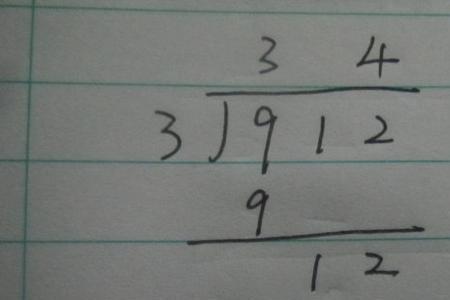 3 4
3)912
9
12